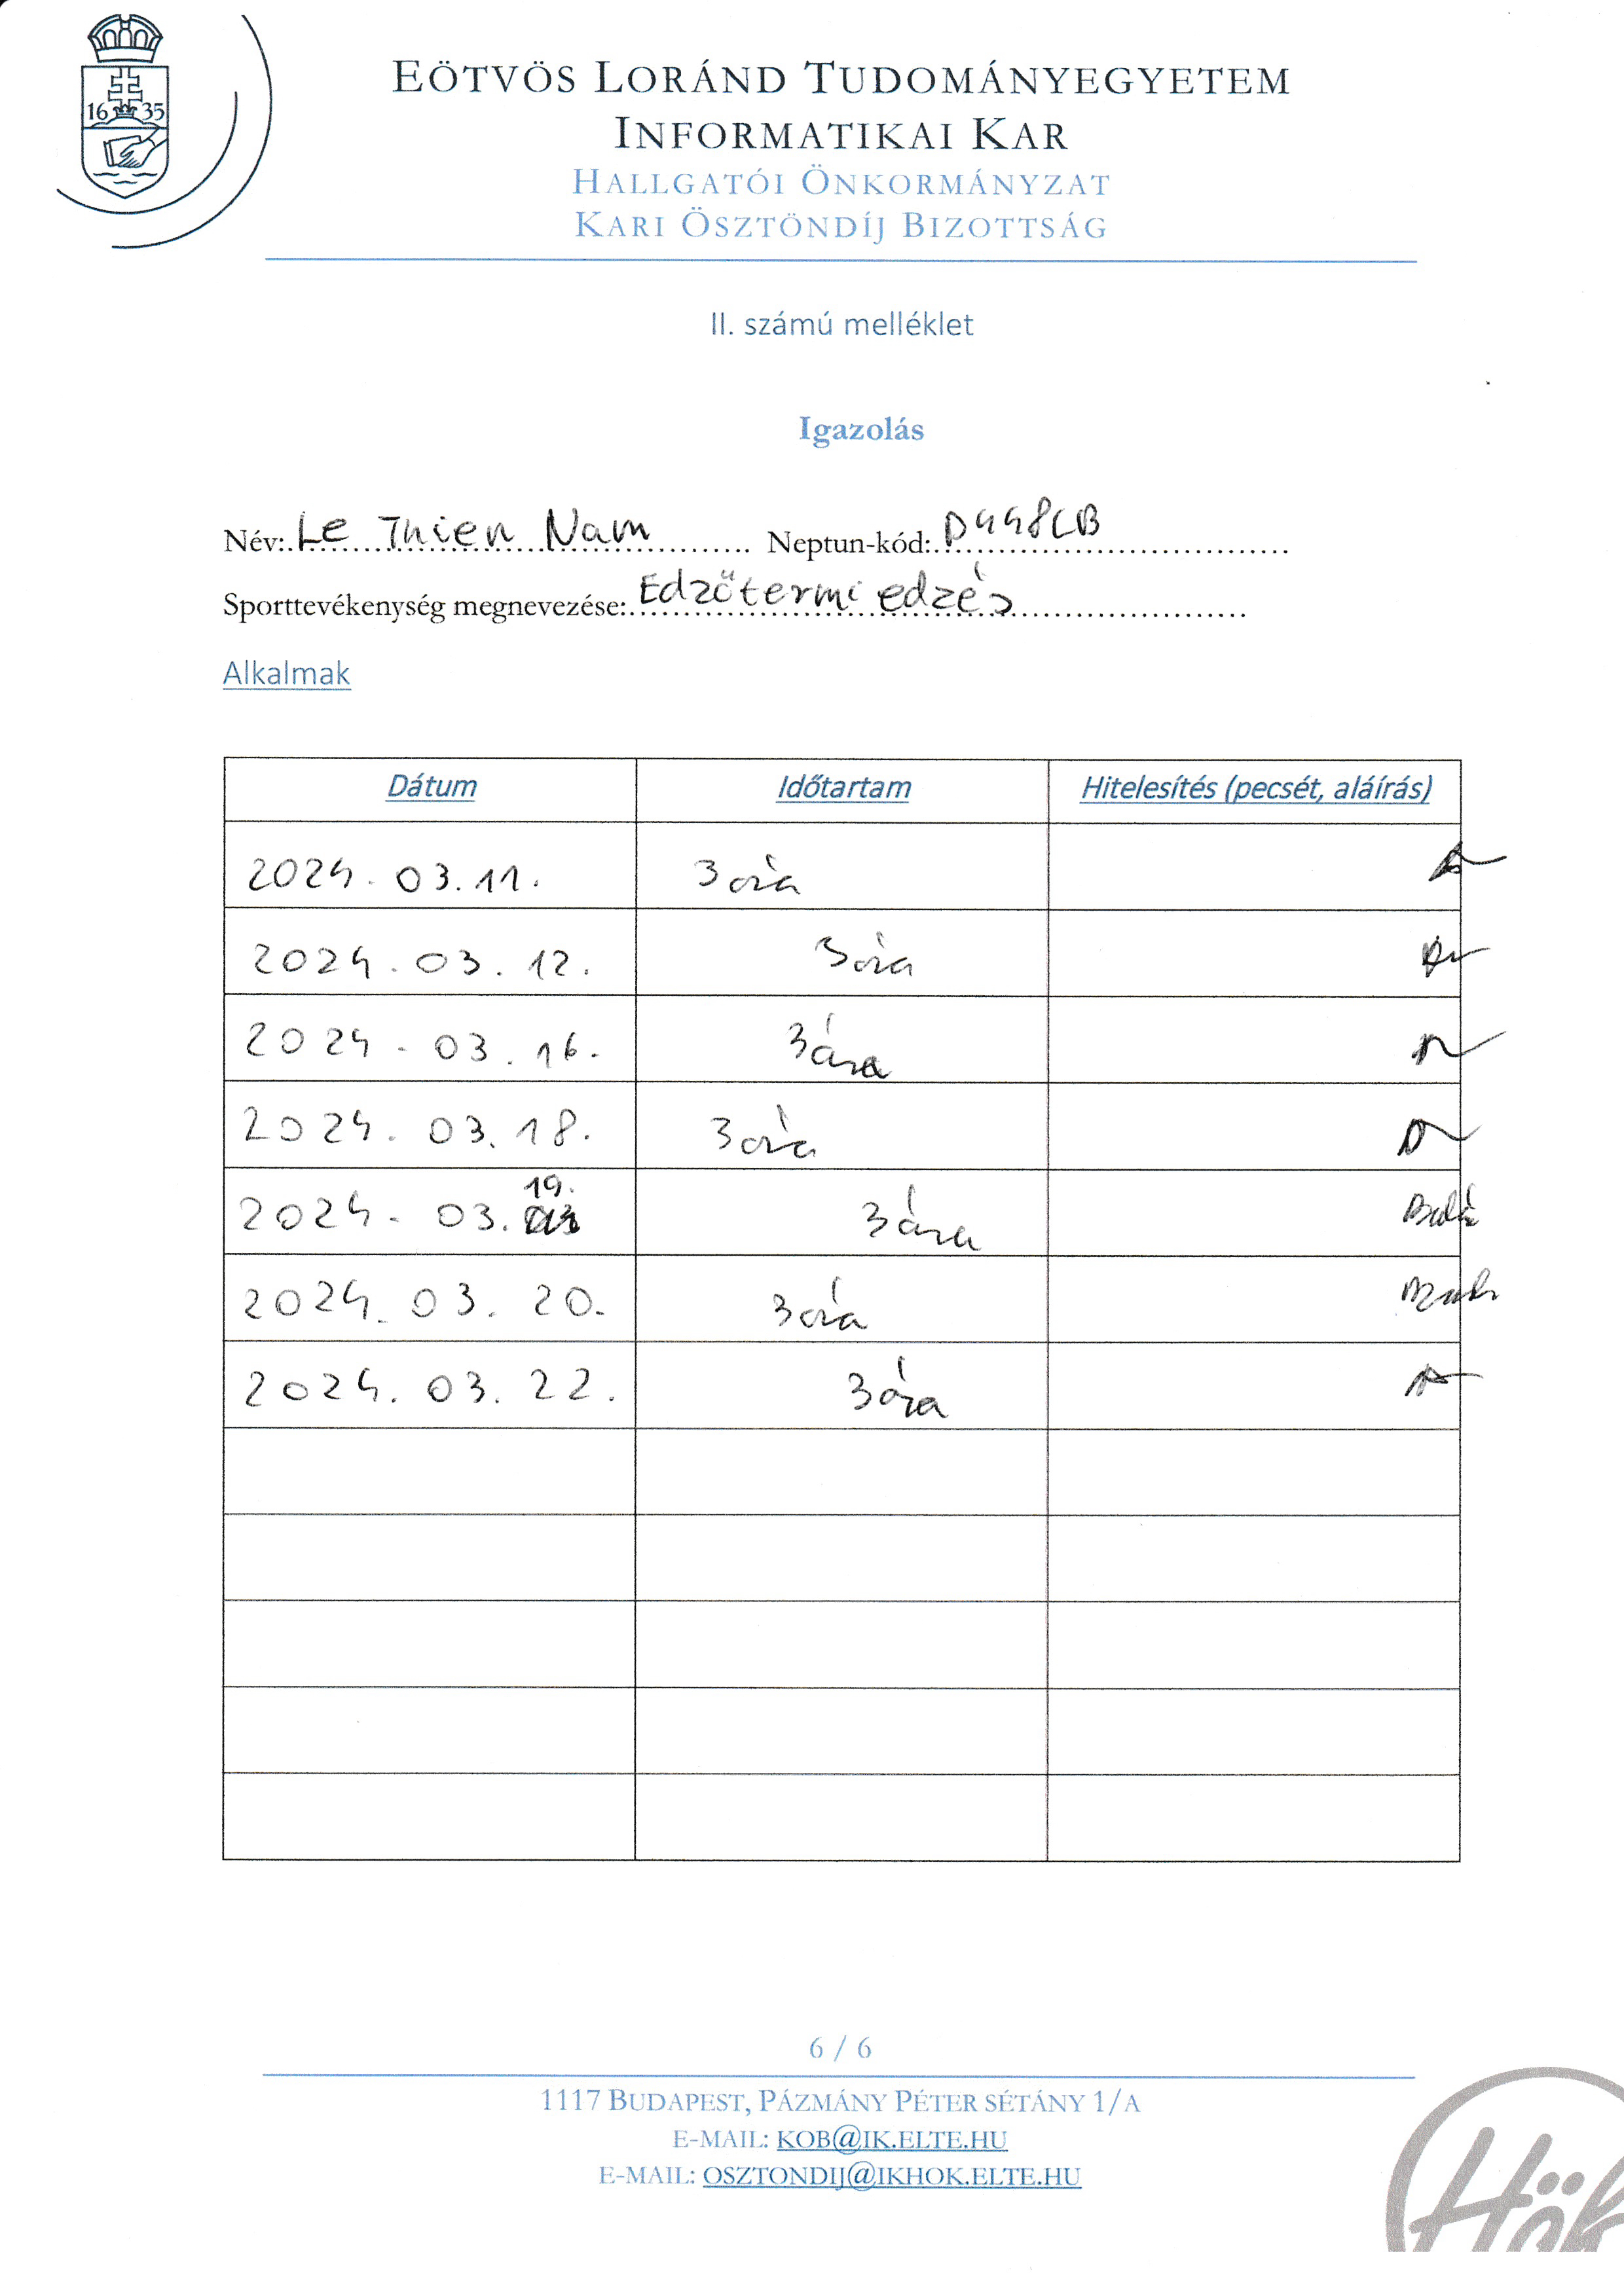 16 35
EÖTVÖS LORÁND TUDOMÁNYEGYETEM
INFORMATIKAI KAR
HALLGATÓI ÖNKORMÁNYZAT
KARI ÖSZTÖNDÍJ BIZOTTSÁG
II. számú melléklet
Igazolás
Név: Le Thien Nam Neptun-kód: D448CB
Sporttevékenység megnevezése: Edzőtermi edzés
Alkalmak
Dátum Időtartam Hitelesítés (pecsét, aláírás)
2024. 03. 11. 3 óra
2024. 03. 12. 3 óra
2024. 03. 16. 3 óra
2024. 03. 18. 3 óra
2024. 03. 19. 3 óra
2024. 03. 20. 3 óra
2024. 03. 22. 3 óra
6 / 6
1117 BUDAPEST, PÁZMÁNY PÉTER SÉTÁNY 1/A
E-MAIL: KOB@IK.ELTE.HU
E-MAIL: OSZTONDIJ@IKHOK.ELTE.HU
Hök